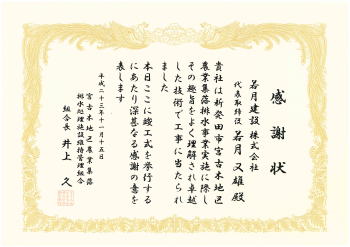 感謝状
若月建設 株式会社
代表取締役 若月又雄殿
貴社は新発田市宮古木地区
農業集落排水事業実施に際し
その趣旨をよく理解され卓越
した技術で工事に当たられ
ました
本日ここに竣工式を挙行する
にあたり深甚なる感謝の意を
表します
平成二十三年十一月十五日
宮古木地区農業集落
排水処理施設維持管理組合
組合長 井上 久